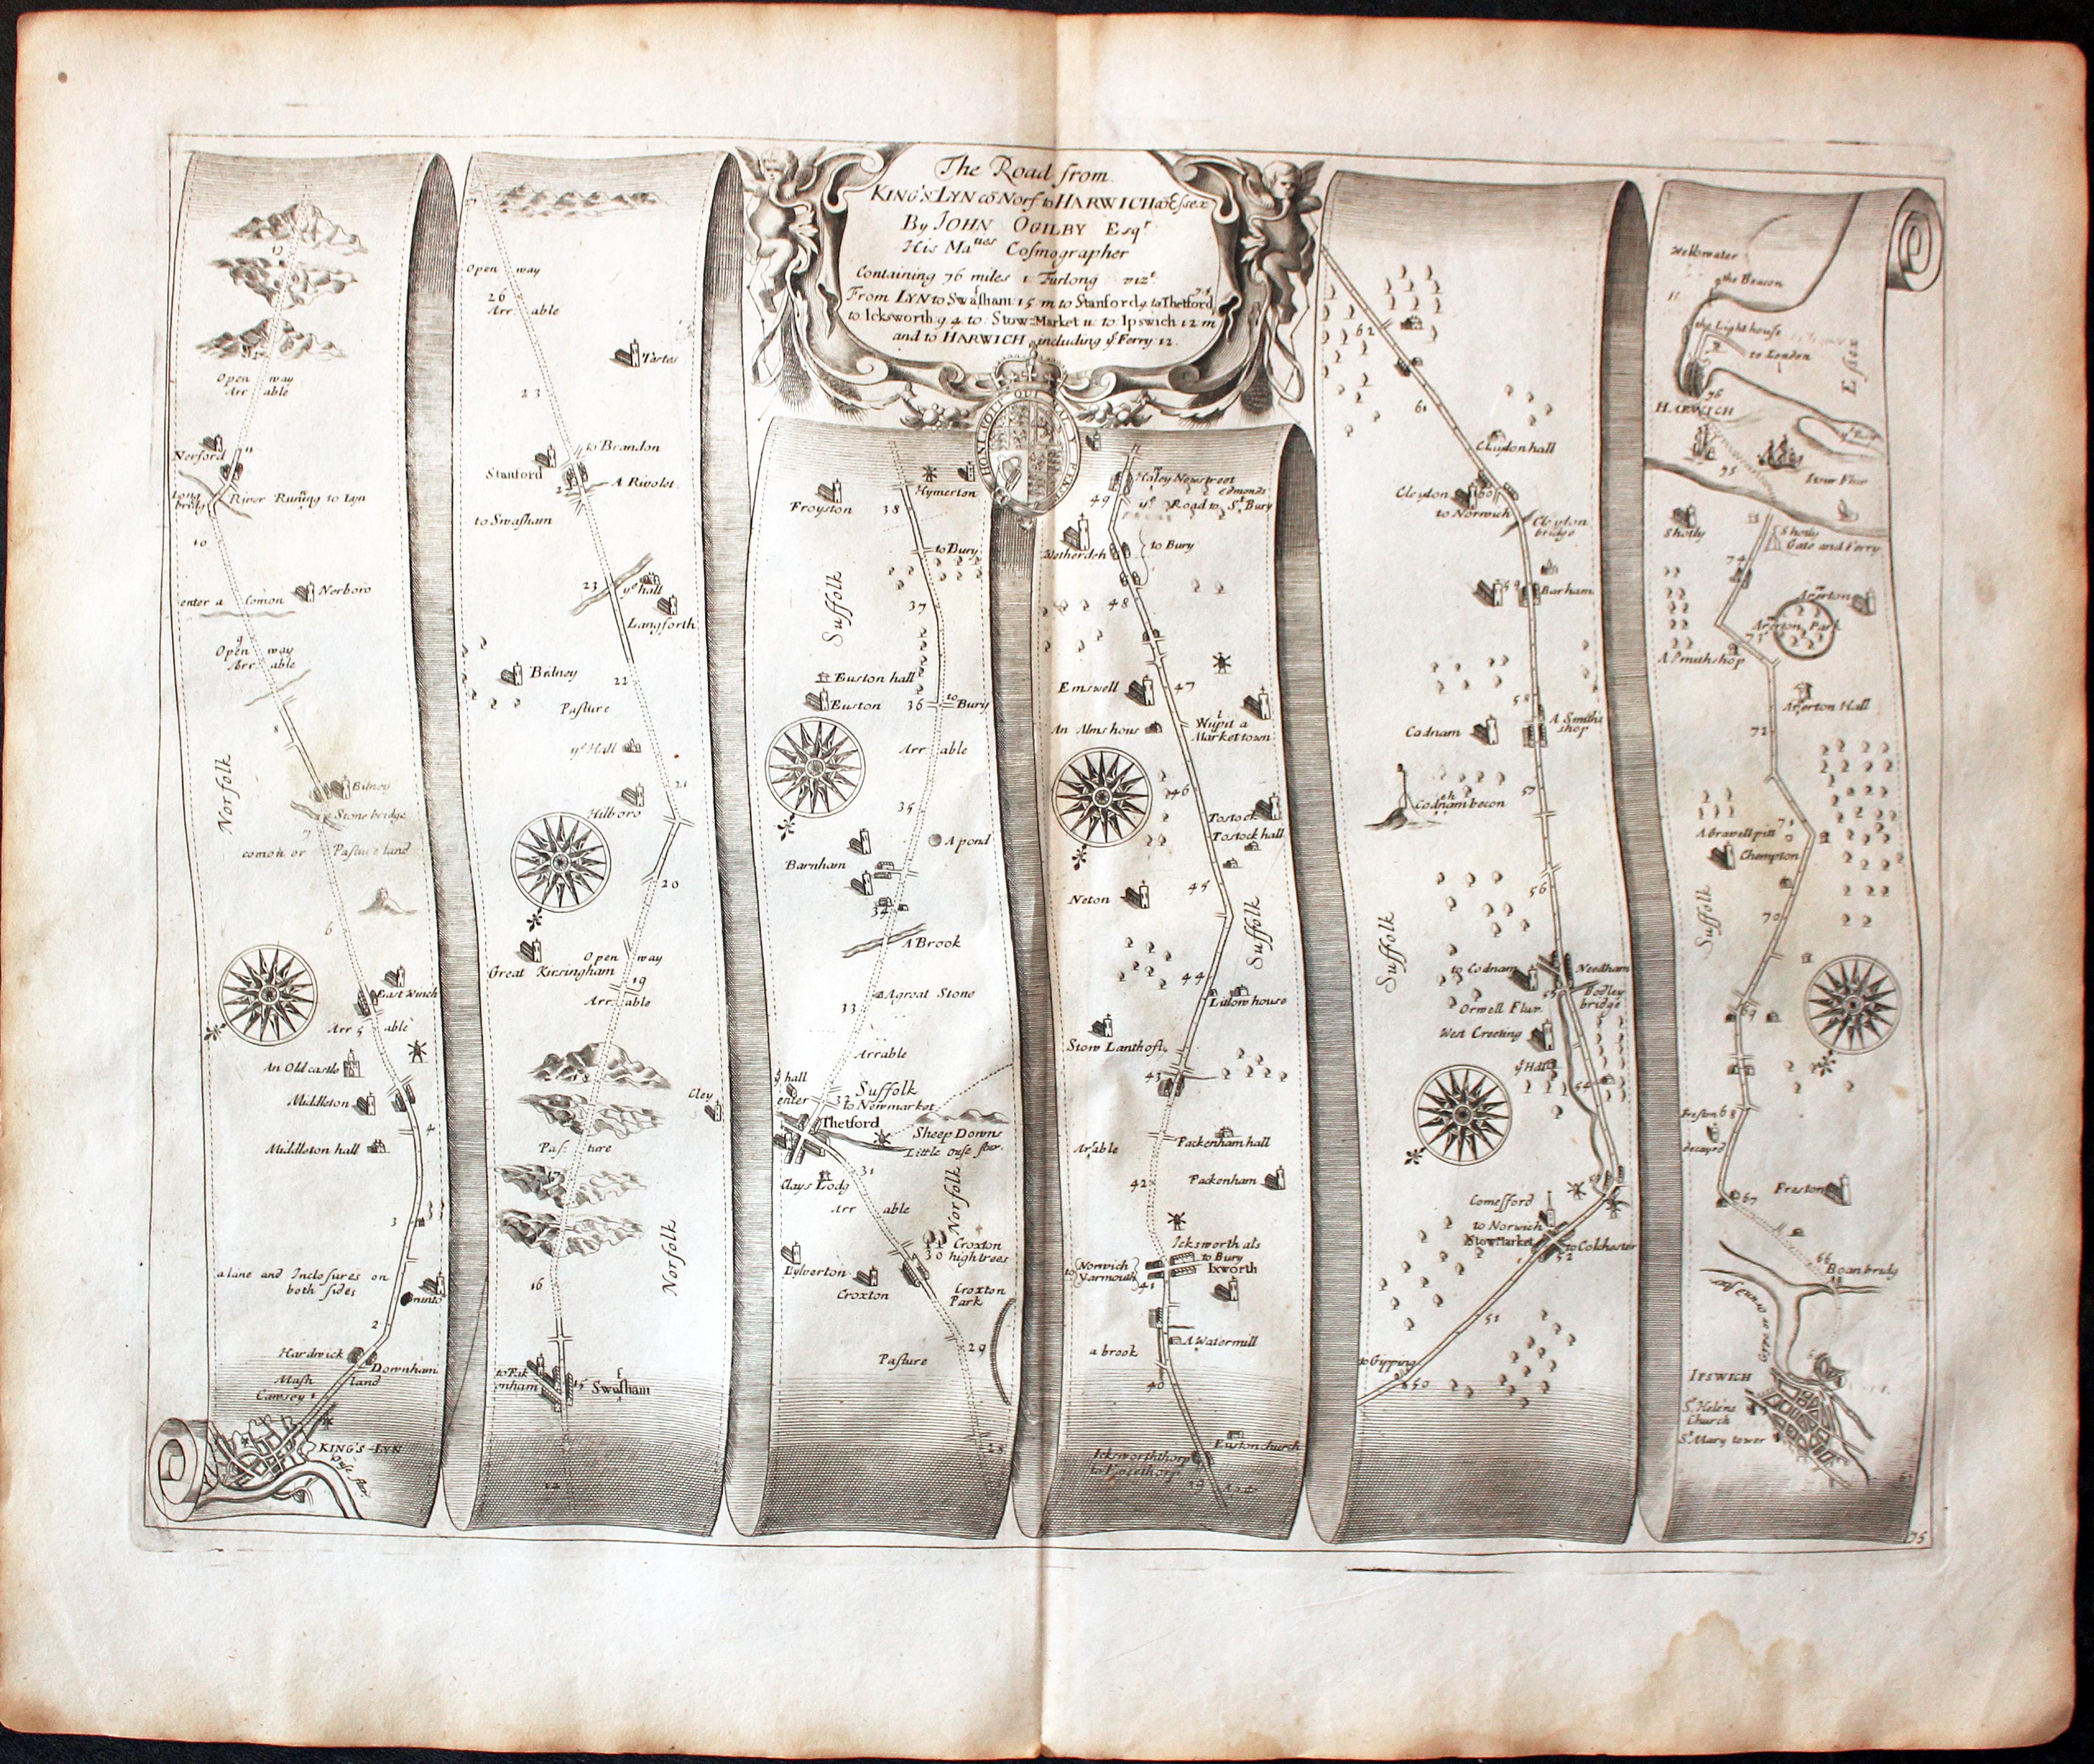 The Road from
KING'S LYN cō Norf to HARWICH cō Essex
By JOHN OGILBY Esqr
His Maties Cosmographer
Containing 76 miles 1 Furlong vizt.
From LYN to Swafham 15 m to Stanford 9 to Thetford 7.5
to Icksworth 9.4 to Stow-Market 11 to Ipswich 12 m
and to HARWICH including ye Ferry 12.
HONI SOIT QUI MAL Y PENSE
Open way
Arr able
Nerford
11
Long bridg
River Runing to Lyn
10
enter a Comon
Nerboro
9
Open way
Arr able
8
Norfolk
Bilney
Stone bridge
7
comon or Pasture land
6
East Winch
Arr 5 able
An Old castle
Middleton
4
Middleton hall
3
a lane and Inclosures on
both sides
2
Hardwick
Downham
Mash land
Cawsey 1
KING'S-LYN
Ouse flu.
Open way
26
Arr able
Tartes
23
to Brandon
Stanford
A Rivolet
to Swafham
23
ye hall
Langforth
Bidney
22
Pasture
ye Hall
21
Hilboro
20
Great Kirsingham
Open way
19
Arr able
18
Cley
Pas: ture
17
Norfolk
16
15
Swafham
Froyston
Hymerton
38
to Bury
Suffolk
37
Euston hall
Euston
36
to Bury
Arr able
35
A pond
Barnham
34
A Brook
A great Stone
33
Arrable
ye hall
enter
Suffolk
32
to Newmarket
Thetford
Sheep Downs
Little Ouse flu.
31
Clays Lodg
Arr able
Norfolk
30
Croxton
high trees
Eylverton
Croxton
Croxton
Park
29
Pasture
28
Haley Newstreet
49
ye Road to St. edmonds Bury
Wetherden
to Bury
48
Emswell
47
An Alms hous
Wulpit a
Market town
46
Tostock
Tostock hall
45
Neton
Suffolk
44
Litlow house
Stow Lanthoft
43
Arrable
Packenham hall
42
Packenham
Icksworth als
to Bury
Norwich
to Yarmouth
Ixworth
41
a brook
A Watermill
40
Euston church
Icksworththorp
39
62
61
Claydon hall
Cleydon
60
to Norwich
Cleydon
bridge
59
Barham
58
Codnam
A Smiths
shop
57
Codnam becon
56
Suffolk
to Codnam
Needham
55
Bodley
bridge
Orwell Fluv.
West Creeting
ye Hall
54
53
Comesford
to Norwich
StowMarket
to Colchester
52
51
to Gipping
50
the Beacon
the Light house
to London
Essex
76
HARWICH
75
Stour Fluv
Shotly
Shotly
Gate and Ferry
74
Arerton
Arerton Park
73
A Smith shop
Arerton Hall
72
71
A Gravell pitt
Chempton
Suffolk
70
69
Freston
68
decayed
67
Freston
66
Boan bridg
Gype or Orwel flu.
IPSWICH
St. Helens
Church
St. Mary tower
75